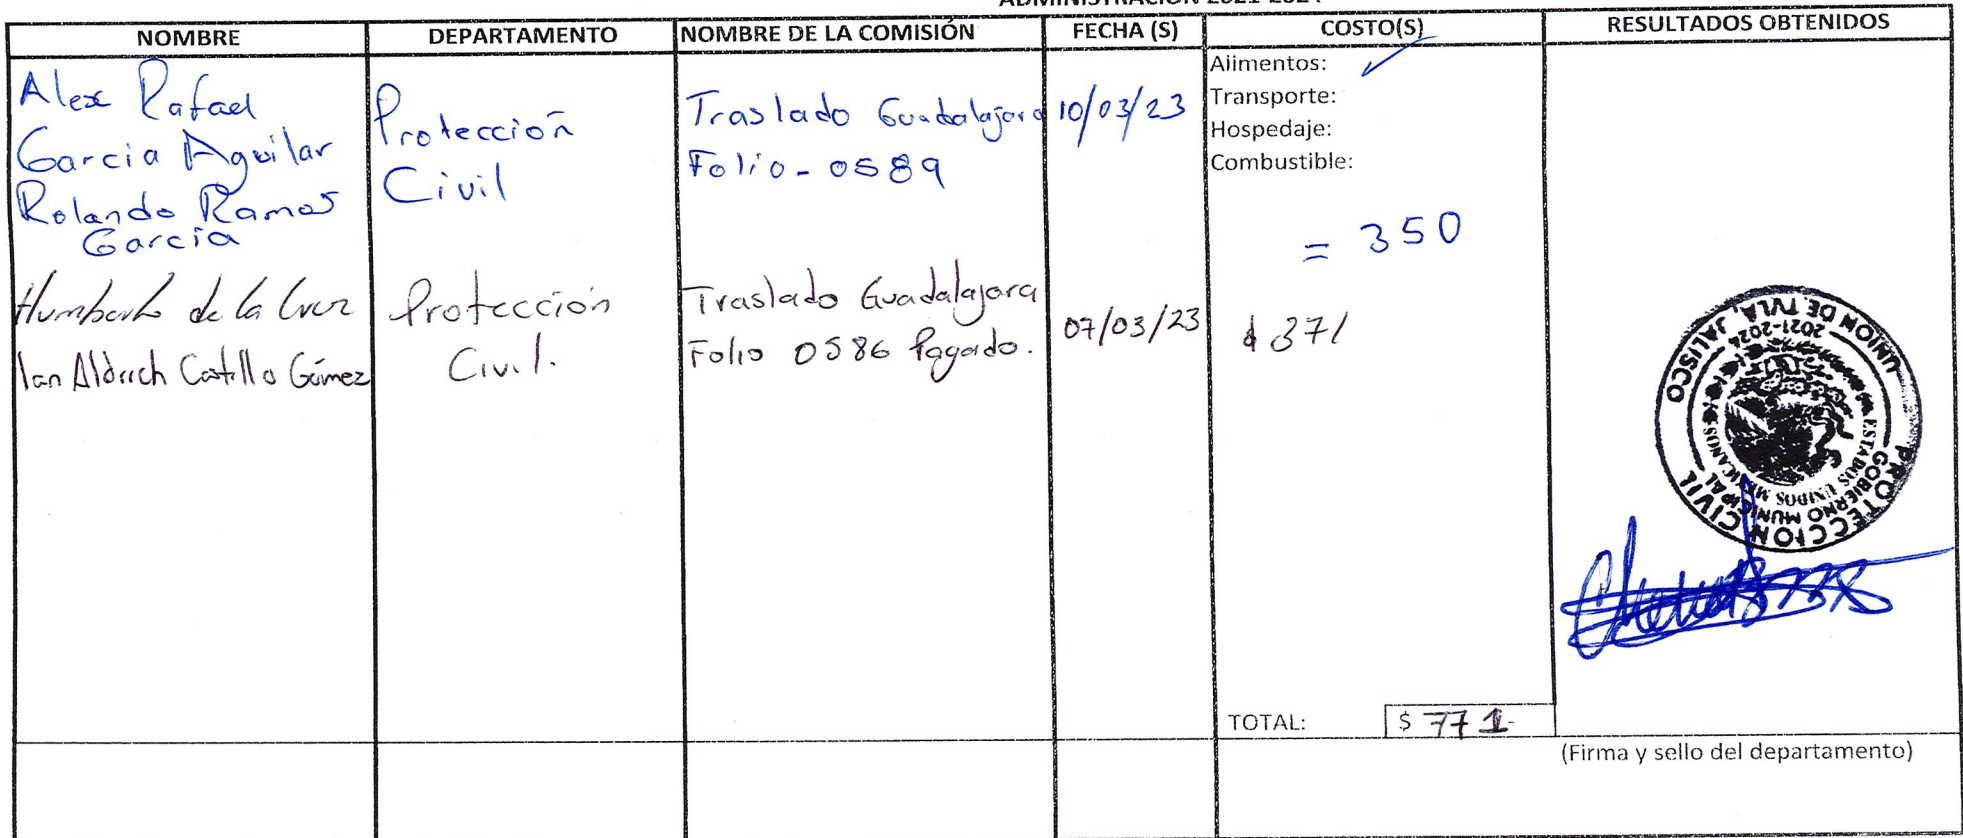 ADMINISTRACIÓN 2021-2024
NOMBRE
DEPARTAMENTO
NOMBRE DE LA COMISIÓN
FECHA (S)
COSTO(S)
RESULTADOS OBTENIDOS
Alex Rafael
Garcia Aguilar
Rolando Ramos
Garcia
Protección
Civil
Traslado Guadalajara
Folio - 0589
10/03/23
Alimentos:
Transporte:
Hospedaje:
Combustible:
= 350
Humberto de la Cruz
Ian Aldrich Castillo Gómez
Protección
Civil.
Traslado Guadalajara
Folio 0586 Pagado.
07/03/23
$ 371
UNION DE TULA, JALISCO
2021-2024
ESTADOS UNIDOS MEXICANOS
GOBIERNO MUNICIPAL
PROTECCION CIVIL
TOTAL:
$ 771
(Firma y sello del departamento)